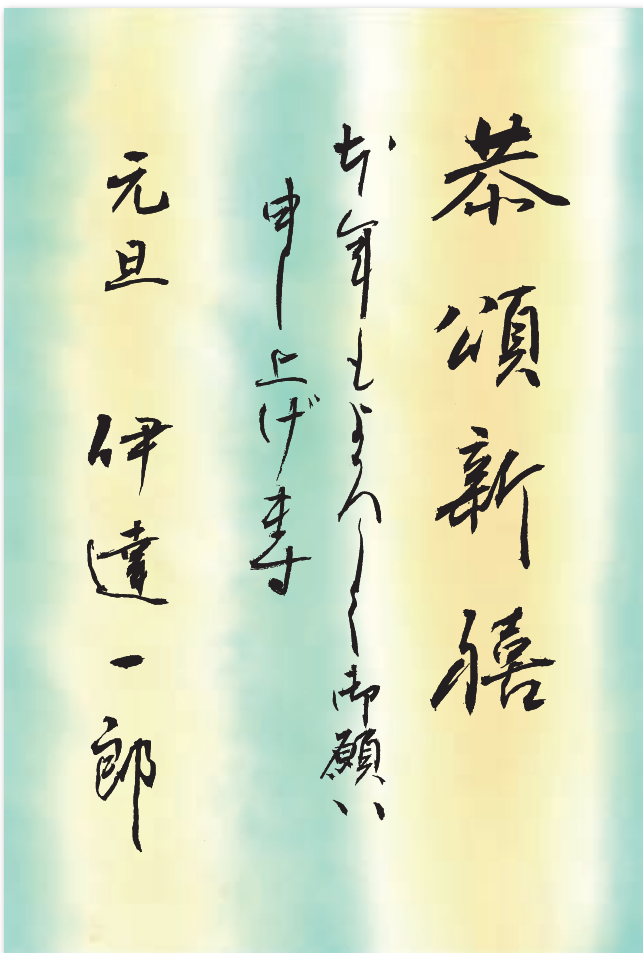 恭頌新禧
本年もよろしく御願い
申し上げます
元旦 伊達一郎